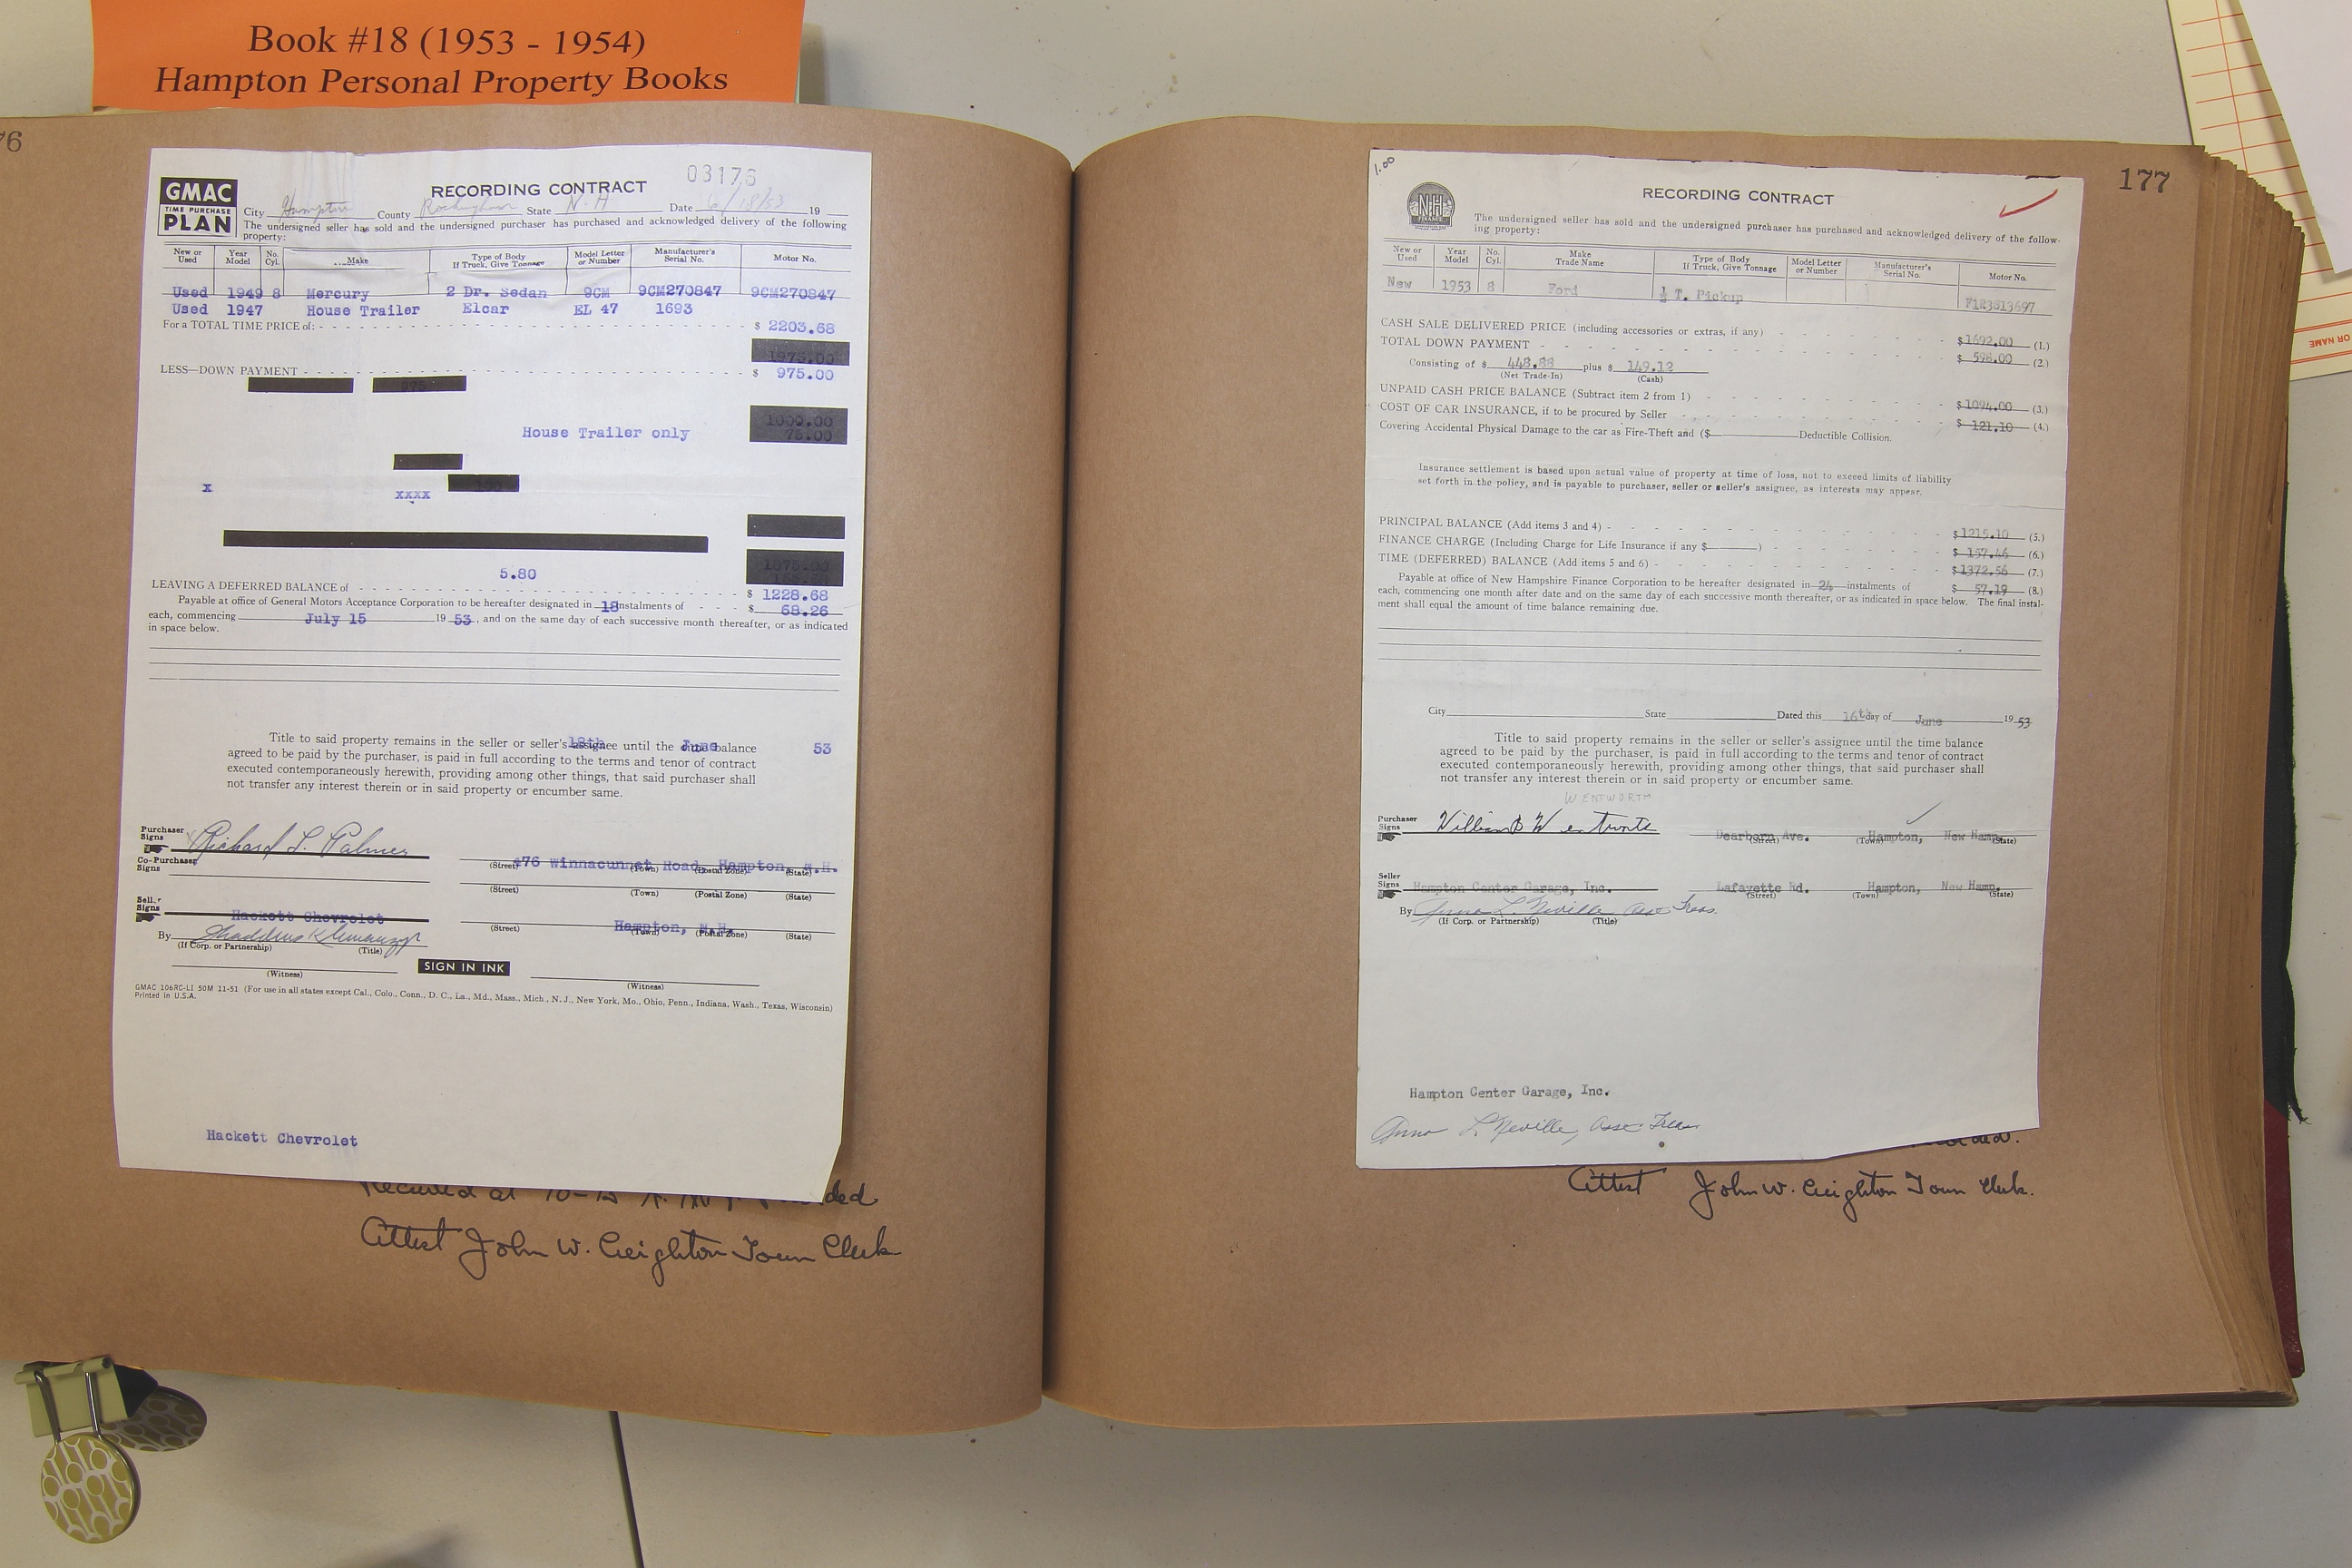 Book #18 (1953 - 1954)
Hampton Personal Property Books
76
GMAC
TIME PURCHASE
PLAN
RECORDING CONTRACT
03176
City Hampton County Rockingham State N.H Date 6/18/53 19
The undersigned seller has sold and the undersigned purchaser has purchased and acknowledged delivery of the following
property:
New or Used Year Model No. Cyl. Make Type of Body If Truck, Give Tonnage Model Letter or Number Manufacturer's Serial No. Motor No.
Used 1949 8 Mercury 2 Dr. Sedan 9CM 9CM270847 9CM270847
Used 1947 House Trailer Elcar EL 47 1693
For a TOTAL TIME PRICE of: $ 2203.68
1975.00
LESS—DOWN PAYMENT $ 975.00
975
1000.00
House Trailer only 75.00
x xxxx
5.80
1075.00
LEAVING A DEFERRED BALANCE of $ 1228.68
Payable at office of General Motors Acceptance Corporation to be hereafter designated in 18 instalments of $ 68.26
each, commencing July 15 1953, and on the same day of each successive month thereafter, or as indicated
in space below.
Title to said property remains in the seller or seller's assignee until the time balance
18th June 53
agreed to be paid by the purchaser, is paid in full according to the terms and tenor of contract
executed contemporaneously herewith, providing among other things, that said purchaser shall
not transfer any interest therein or in said property or encumber same.
Purchaser Signs Richard L. Palmer
Co-Purchaser Signs
(Street) 476 Winnacunnet Road, Hampton, N.H. (Town) (Postal Zone) (State)
(Street) (Town) (Postal Zone) (State)
Seller Signs Hackett Chevrolet
(Street) Hampton, N.H. (Town) (Postal Zone) (State)
By
(If Corp. or Partnership) (Title)
SIGN IN INK
(Witness) (Witness)
GMAC 106RC-LI 50M 11-51 (For use in all states except Cal., Colo., Conn., D. C., La., Md., Mass., Mich., N. J., New York, Mo., Ohio, Penn., Indiana, Wash., Texas, Wisconsin)
Printed in U.S.A.
Hackett Chevrolet
Received at 10-15 A.M.
Attest John W. Creighton Town Clerk
177
1.00
NH
FINANCE
RECORDING CONTRACT
The undersigned seller has sold and the undersigned purchaser has purchased and acknowledged delivery of the follow-
ing property:
New or Used Year Model No. Cyl. Make Trade Name Type of Body If Truck, Give Tonnage Model Letter or Number Manufacturer's Serial No. Motor No.
New 1953 8 Ford ½ T. Pickup F1R3B13697
CASH SALE DELIVERED PRICE (including accessories or extras, if any) $1692.00 (1.)
TOTAL DOWN PAYMENT $ 598.00 (2.)
Consisting of $ 448.88 plus $ 149.12
(Net Trade-In) (Cash)
UNPAID CASH PRICE BALANCE (Subtract item 2 from 1) $1094.00 (3.)
COST OF CAR INSURANCE, if to be procured by Seller $ 121.10 (4.)
Covering Accidental Physical Damage to the car as Fire-Theft and ($ Deductible Collision.
Insurance settlement is based upon actual value of property at time of loss, not to exceed limits of liability
set forth in the policy, and is payable to purchaser, seller or seller's assignee, as interests may appear.
PRINCIPAL BALANCE (Add items 3 and 4) $1215.10 (5.)
FINANCE CHARGE (Including Charge for Life Insurance if any $ ) $ 157.46 (6.)
TIME (DEFERRED) BALANCE (Add items 5 and 6) $1372.56 (7.)
Payable at office of New Hampshire Finance Corporation to be hereafter designated in 24 instalments of $ 57.19 (8.)
each, commencing one month after date and on the same day of each successive month thereafter, or as indicated in space below. The final instal-
ment shall equal the amount of time balance remaining due.
City State Dated this 16th day of June 19 53
Title to said property remains in the seller or seller's assignee until the time balance
agreed to be paid by the purchaser, is paid in full according to the terms and tenor of contract
executed contemporaneously herewith, providing among other things, that said purchaser shall
not transfer any interest therein or in said property or encumber same.
WENTWORTH
Purchaser Signs William B Wentworth Dearborn Ave. Hampton, New Hamp.
(Street) (Town) (State)
Seller Signs Hampton Center Garage, Inc. Lafayette Rd. Hampton, New Hamp.
(Street) (Town) (State)
By Anna L. Neville Asst Treas.
(If Corp. or Partnership) (Title)
Hampton Center Garage, Inc.
Anna L Neville, Asst Treas
Attest John W. Creighton Town Clerk.
OR NAME